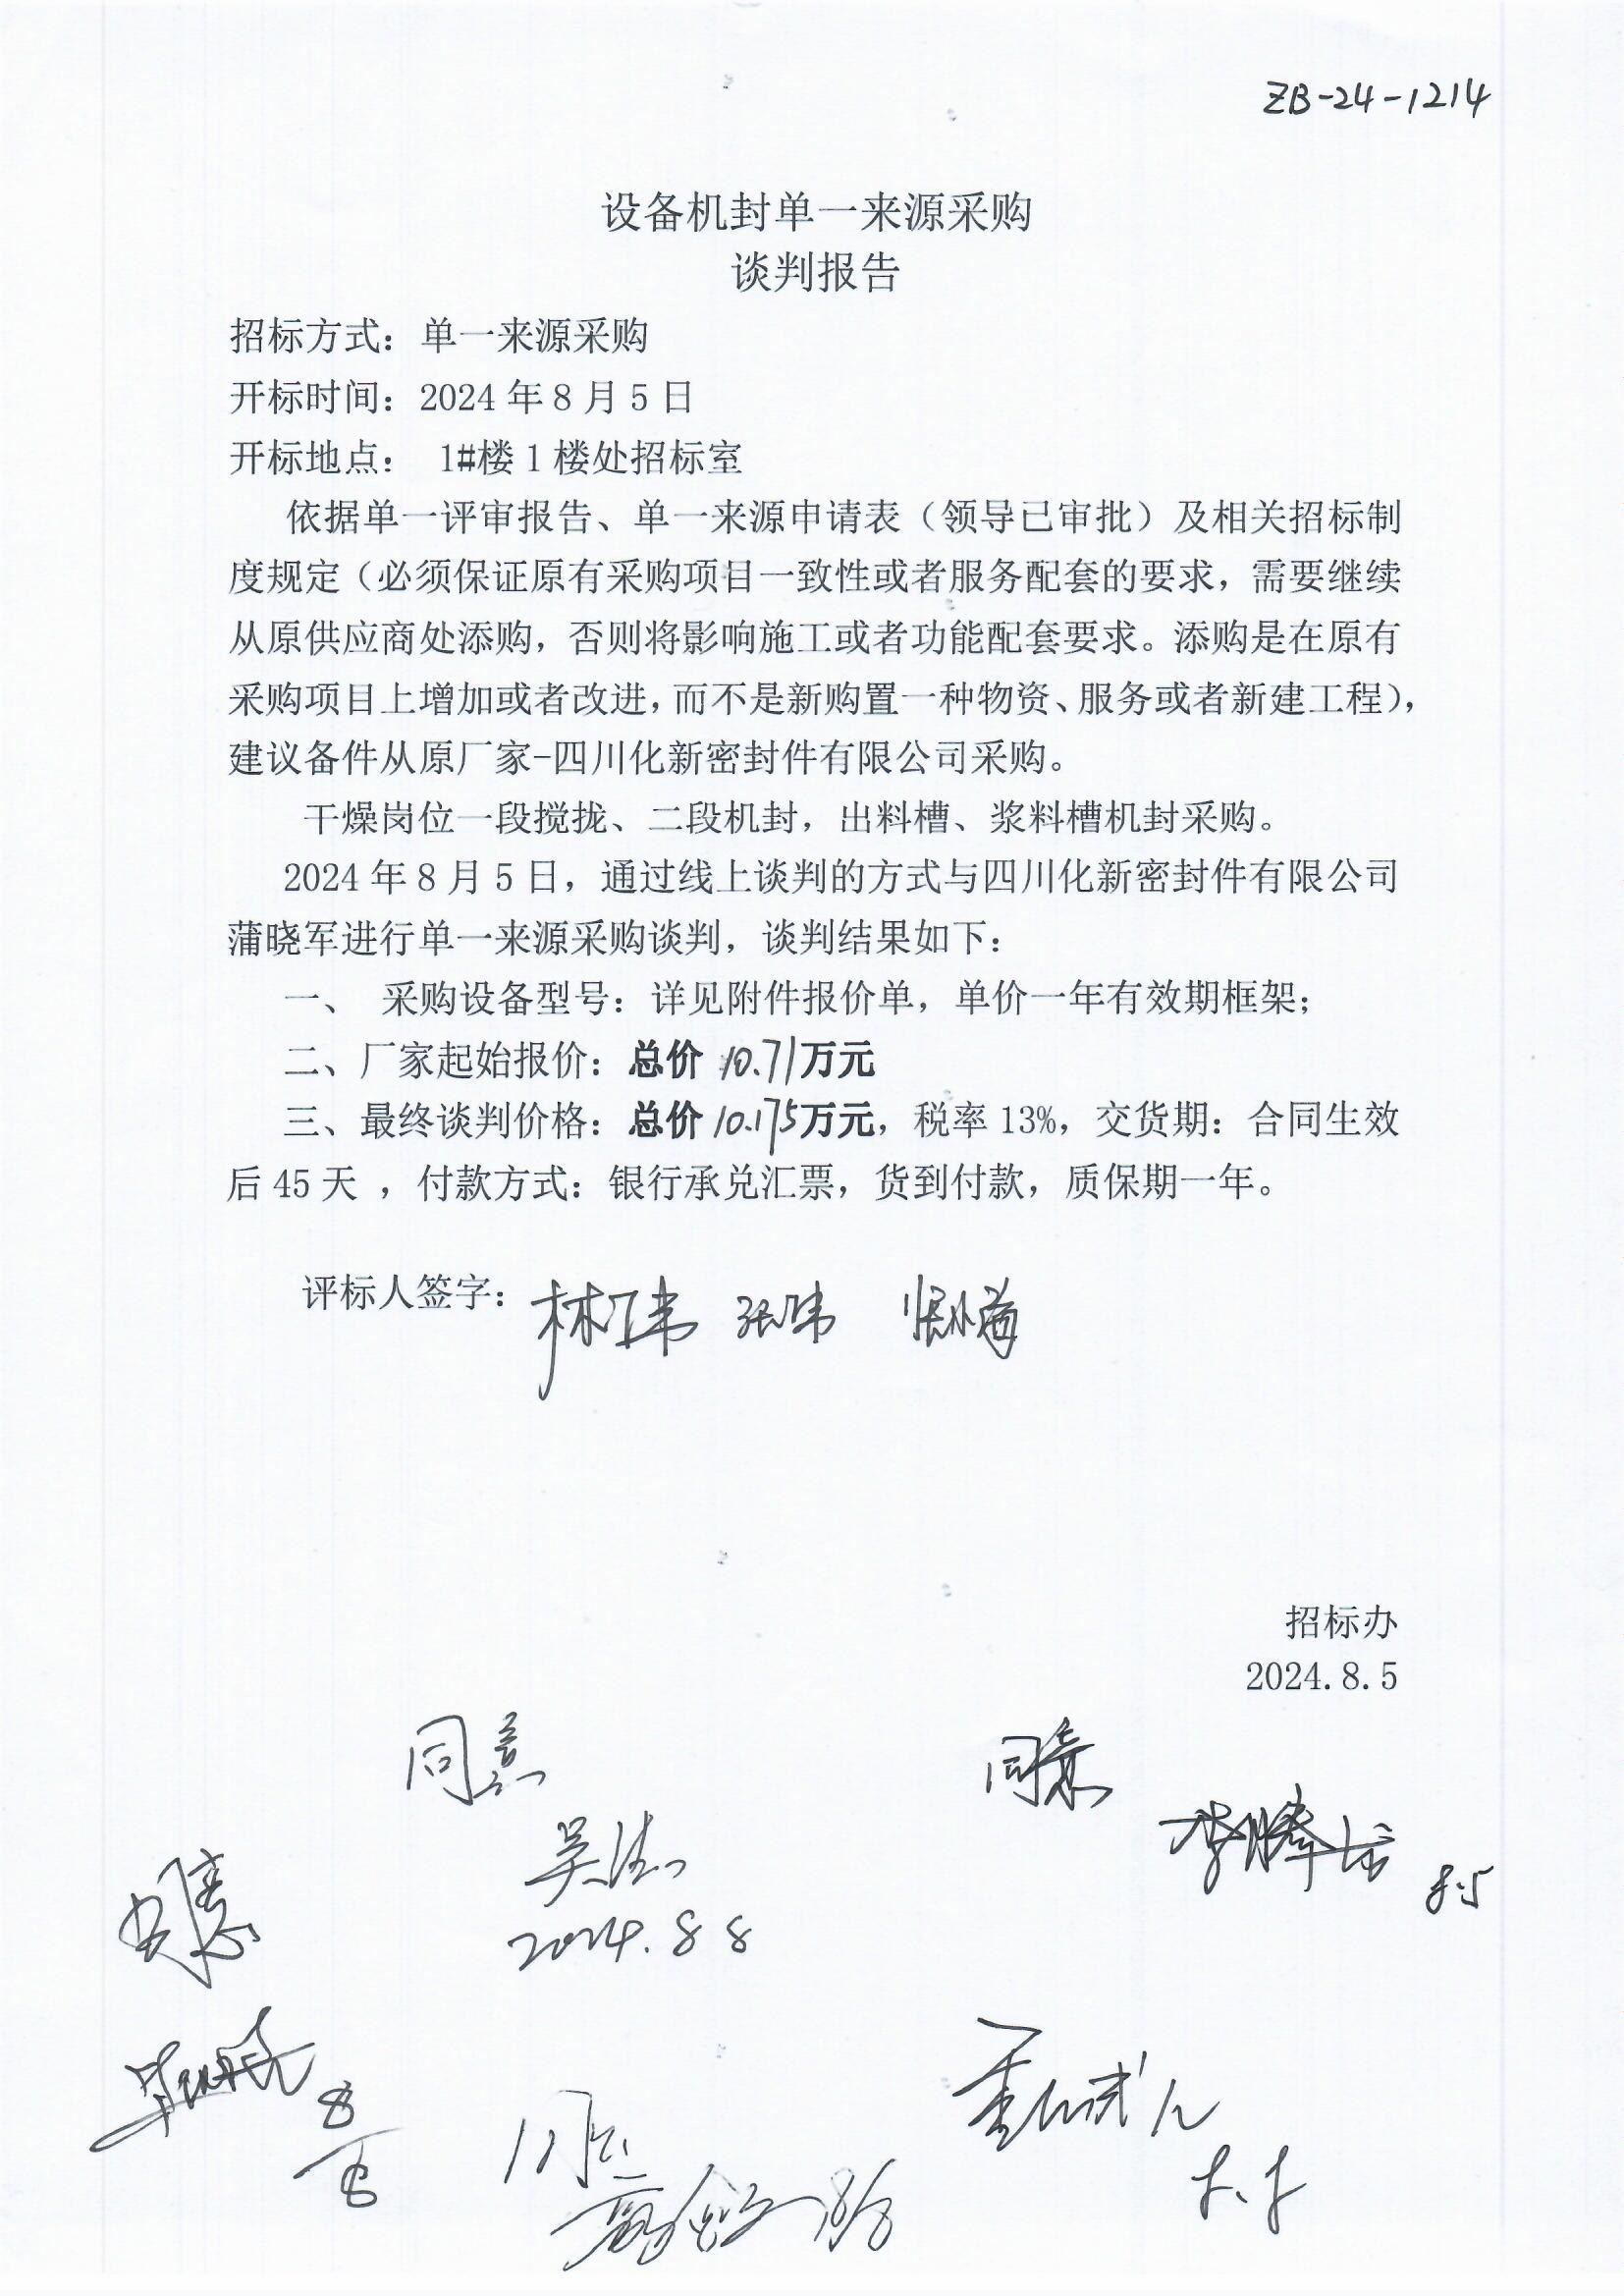 ZB-24-1214
设备机封单一来源采购
谈判报告
招标方式：单一来源采购
开标时间：2024 年 8 月 5 日
开标地点： 1#楼 1 楼处招标室
依据单一评审报告、单一来源申请表（领导已审批）及相关招标制
度规定（必须保证原有采购项目一致性或者服务配套的要求，需要继续
从原供应商处添购，否则将影响施工或者功能配套要求。添购是在原有
采购项目上增加或者改进，而不是新购置一种物资、服务或者新建工程），
建议备件从原厂家-四川化新密封件有限公司采购。
干燥岗位一段搅拢、二段机封，出料槽、浆料槽机封采购。
2024 年 8 月 5 日，通过线上谈判的方式与四川化新密封件有限公司
蒲晓军进行单一来源采购谈判，谈判结果如下：
一、 采购设备型号：详见附件报价单，单价一年有效期框架；
二、厂家起始报价：总价 10.71万元
三、最终谈判价格：总价 10.175万元，税率 13%，交货期：合同生效
后 45 天 ，付款方式：银行承兑汇票，货到付款，质保期一年。
评标人签字：
招标办
2024.8.5
同意 同意
8.5
2024.8 8
8
8
8/8